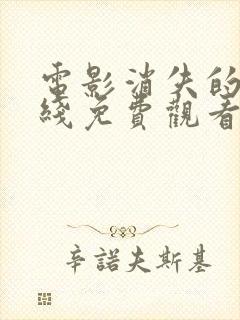 電影消失的
綫免費觀看
辛諾夫斯基